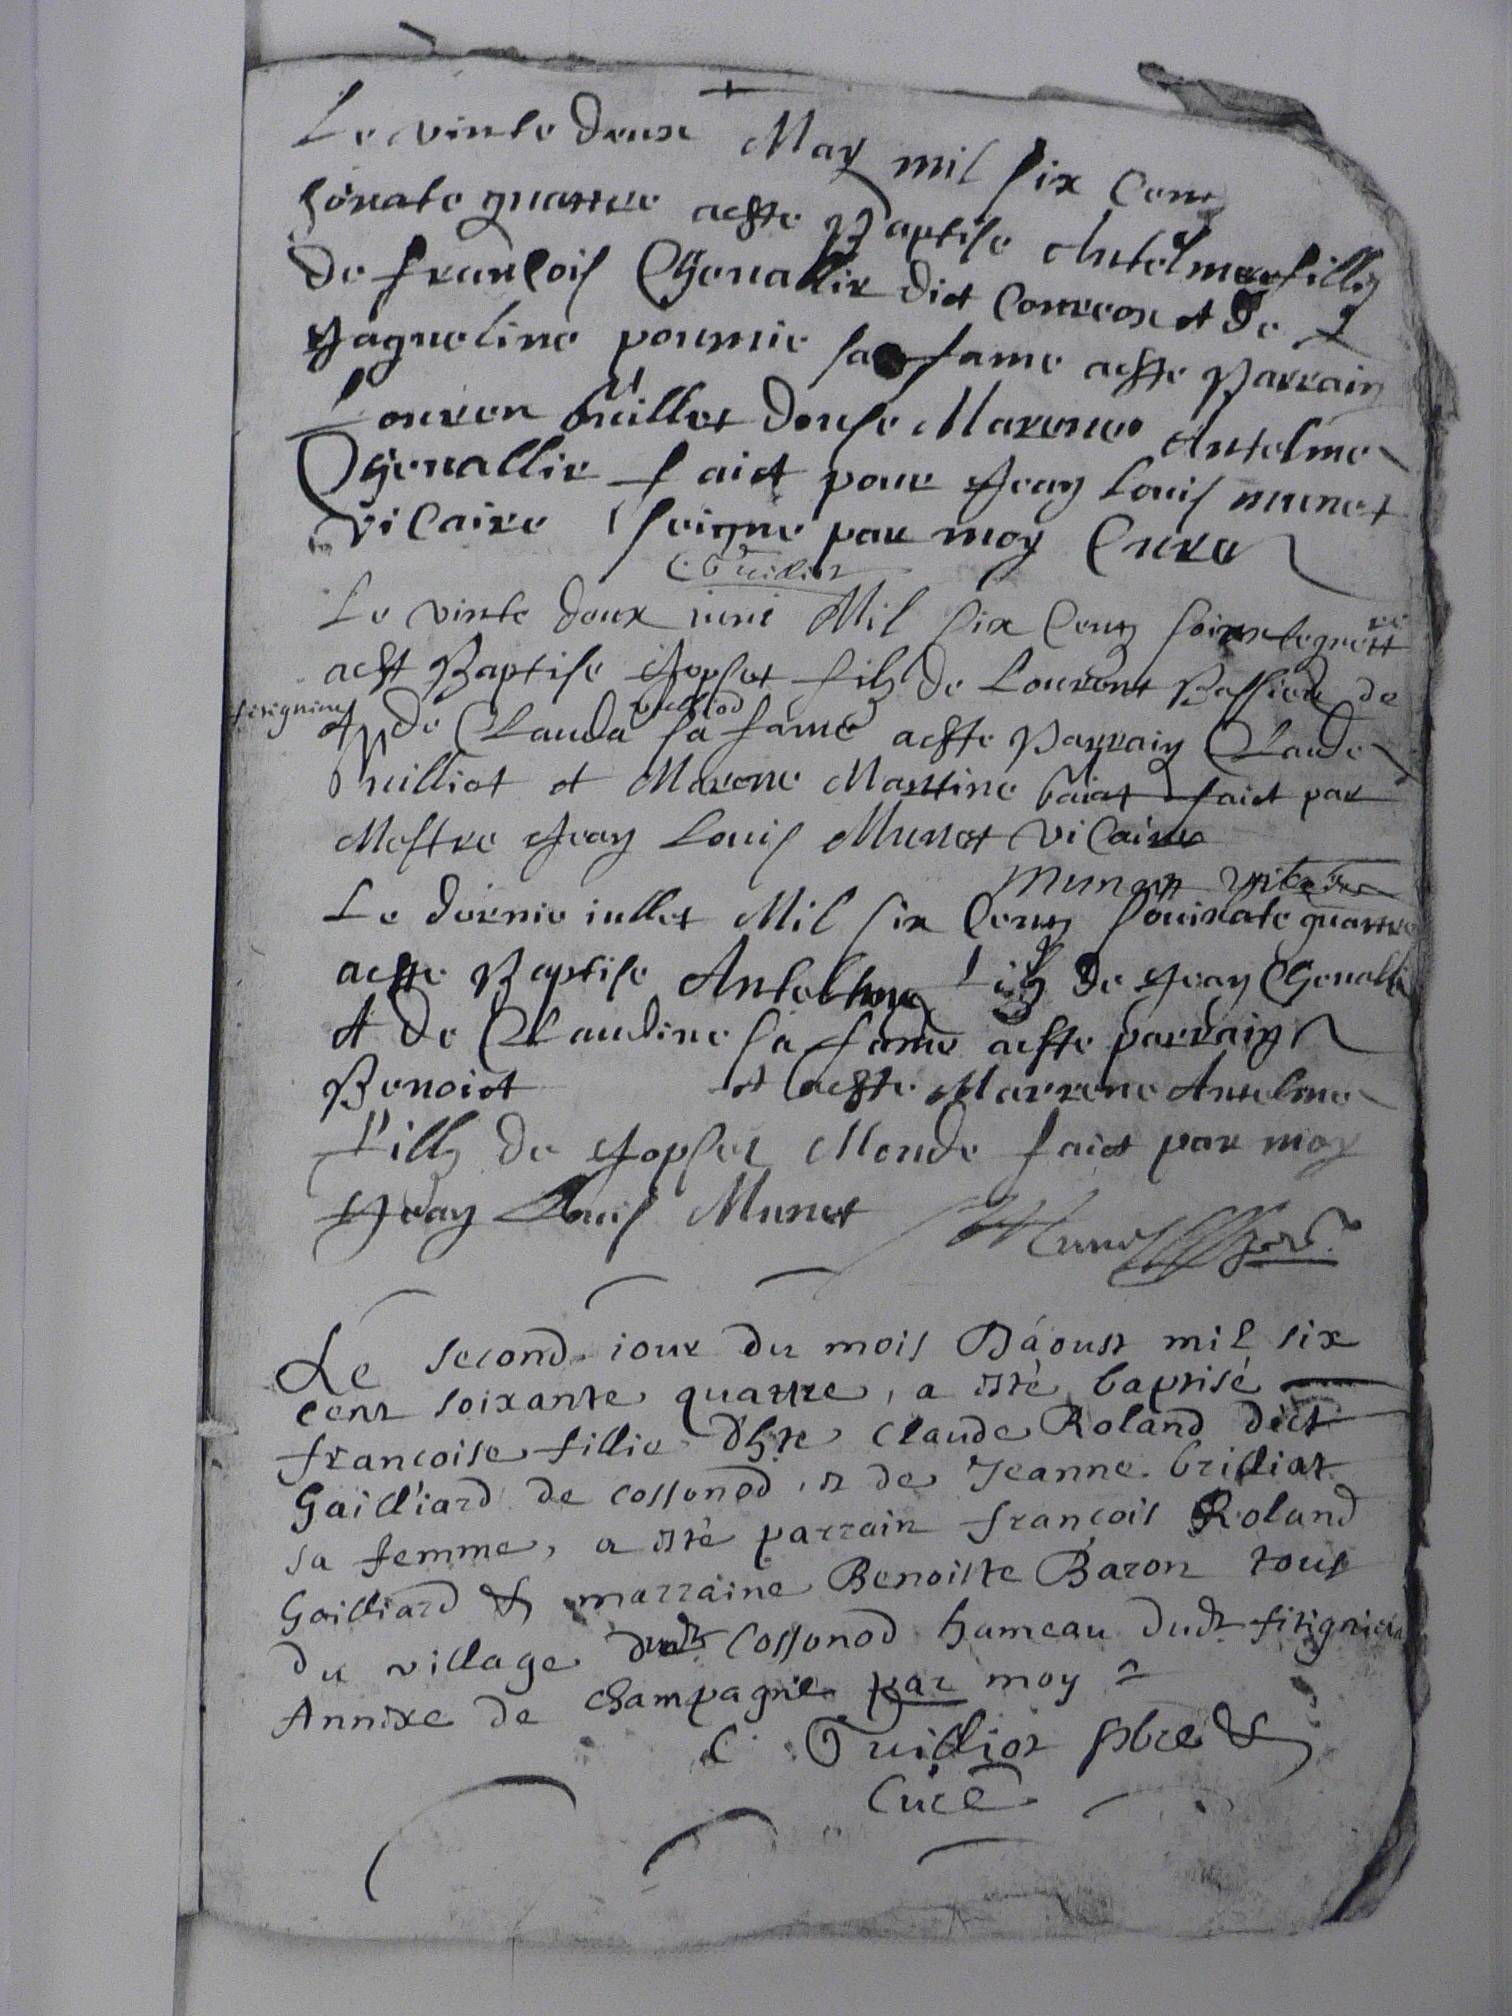 Le vinte deux May mil six Cens
soixate quattre aeste Baptise Antelme fillz
de francois Chenallie dict et de
Jaqueline poumie sa fame aeste Parrain
Louren huilliet douse Marene Antelme
Chenallie faict pour Jean Louis munet
viCaire seigne par moy Cure
C Vuilliot
Le vinte deux iuni Mil six Cens
aest Baptise Jopset filz de Lourent Passieu de
fitignieu
et de Clauda vuilliod sa fame aeste Parrain Claude
Vuilliot et Marene Martine faict par
Mestre Jean Louis Munet viCaire
Munet vicaire
Le dernie iullet Mil six Cens souixate quattre
aeste Baptise Antelme filz de Jean Chenallie
et de Claudine sa fame aeste parrain
Benoict et aeste Marrene Antelme
fillz de Jopset Monde faict par moy
Jean Louis Munet
Munet
Le second iour du mois D'aoust mil six
cent soixante quattre, a esté baptisé
francoise fillie d'hte Claude Roland dict
Gailliard de cossonod, et de Jeanne brilliat
sa femme, a esté parrain françois Roland
Gailliard & marraine Benoiste Baron tous
du village dudt Cossonod hameau dudt fitignieu
Annixe de Champagne par moy
C Vuilliot pbre &
Curé